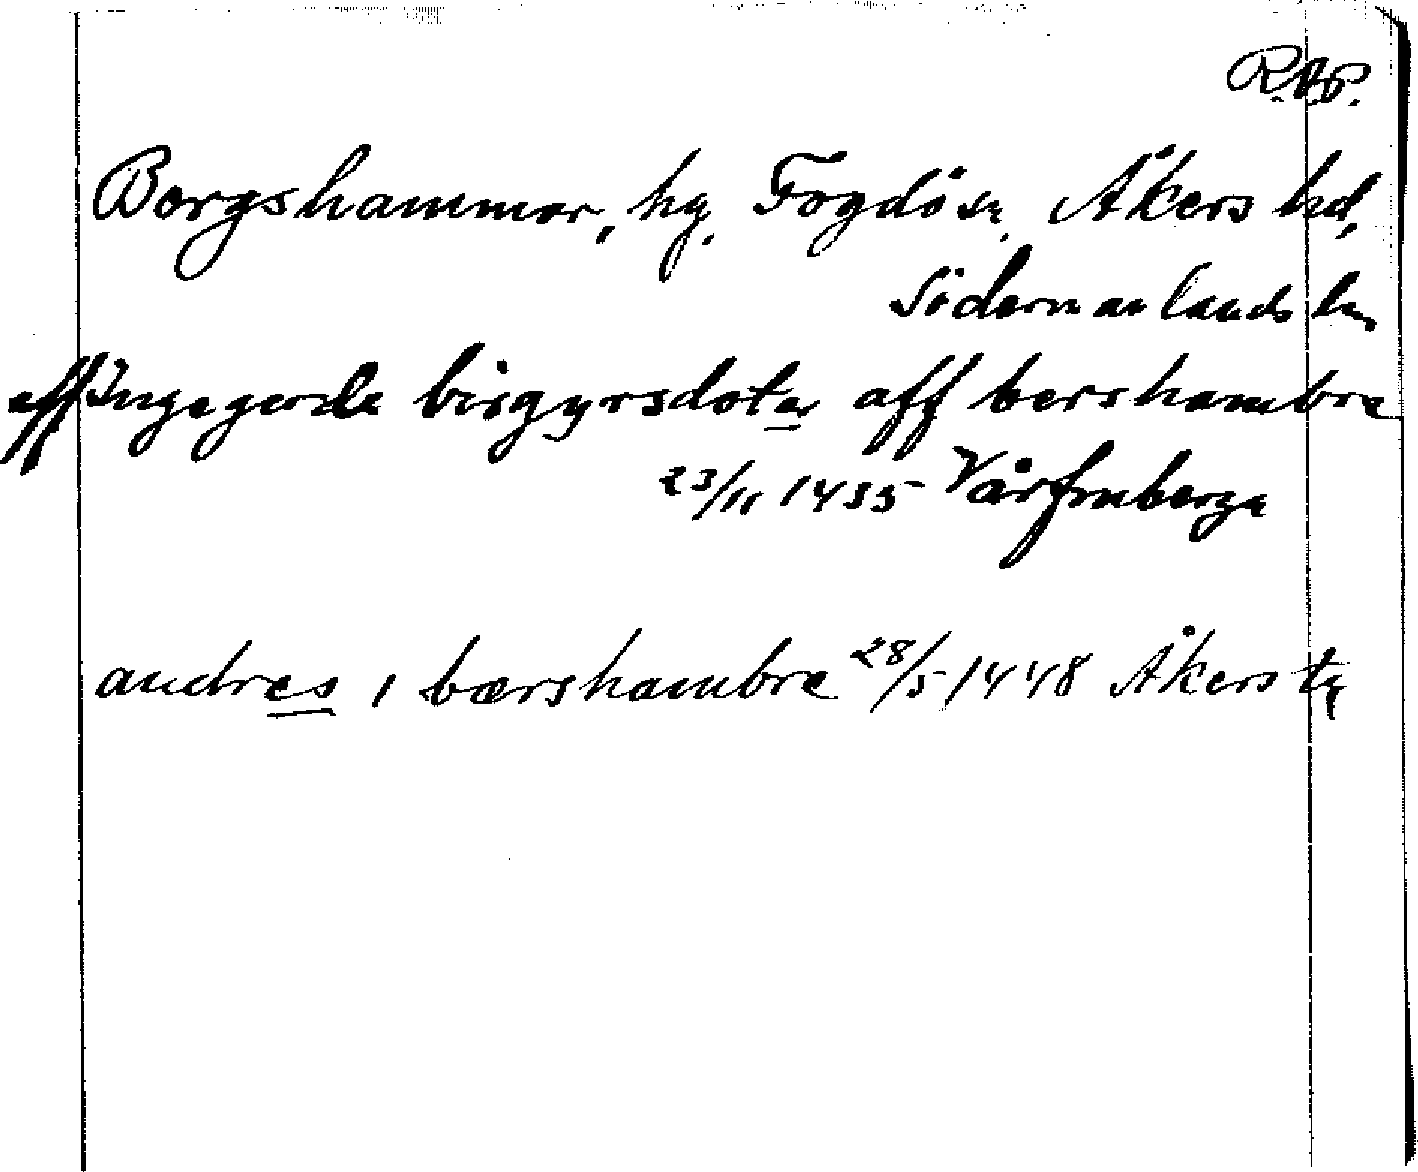 R.A.P.
Bergshammar, hg, Fogdö sn, Åkers hd,
Södermanlands län
aff Ingegerde birgyrsdoter aff bershambre
23/11 1435 Vårfruberga
andres i bærshambre 28/5 1448 Åkers tg